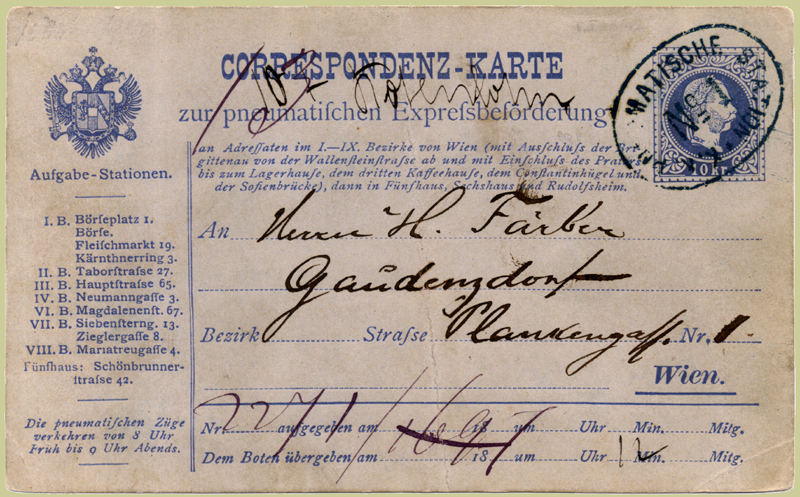 CORRESPONDENZ-KARTE
zur pneumatiſchen Expreſsbeförderung
an Adreſſaten im I.—IX. Bezirke von Wien (mit Ausſchluſs der Bri-
gittenau von der Wallenſteinſtraſse ab und mit Einſchluſs des Praters
bis zum Lagerhauſe, dem dritten Kaffeehauſe, dem Conſtantinhügel und
der Sofienbrücke), dann in Fünfhaus, Sechshaus und Rudolfsheim.
MATISCHE STATION
10 kr.
Aufgabe-Stationen.
I. B. Börſeplatz 1.
Börſe.
Fleiſchmarkt 19.
Kärnthnerring 3.
II. B. Taborſtraſse 27.
III. B. Hauptſtraſse 65.
IV. B. Neumanngaſſe 3.
VI. B. Magdalenenſt. 67.
VII. B. Siebenſterng. 13.
Zieglergaſſe 8.
VIII. B. Mariatreugaſſe 4.
Fünfhaus: Schönbrunner-
ſtraſse 42.
Die pneumatiſchen Züge
verkehren von 8 Uhr
Früh bis 9 Uhr Abends.
An Herrn H. Färber
Gaudenzdorf
Bezirk Straſse Plankengaſs. Nr. 1.
Wien.
Nr. aufgegeben am 18 um Uhr Min. Mitg.
Dem Boten übergeben am 18 um Uhr 12 Min. Mitg.